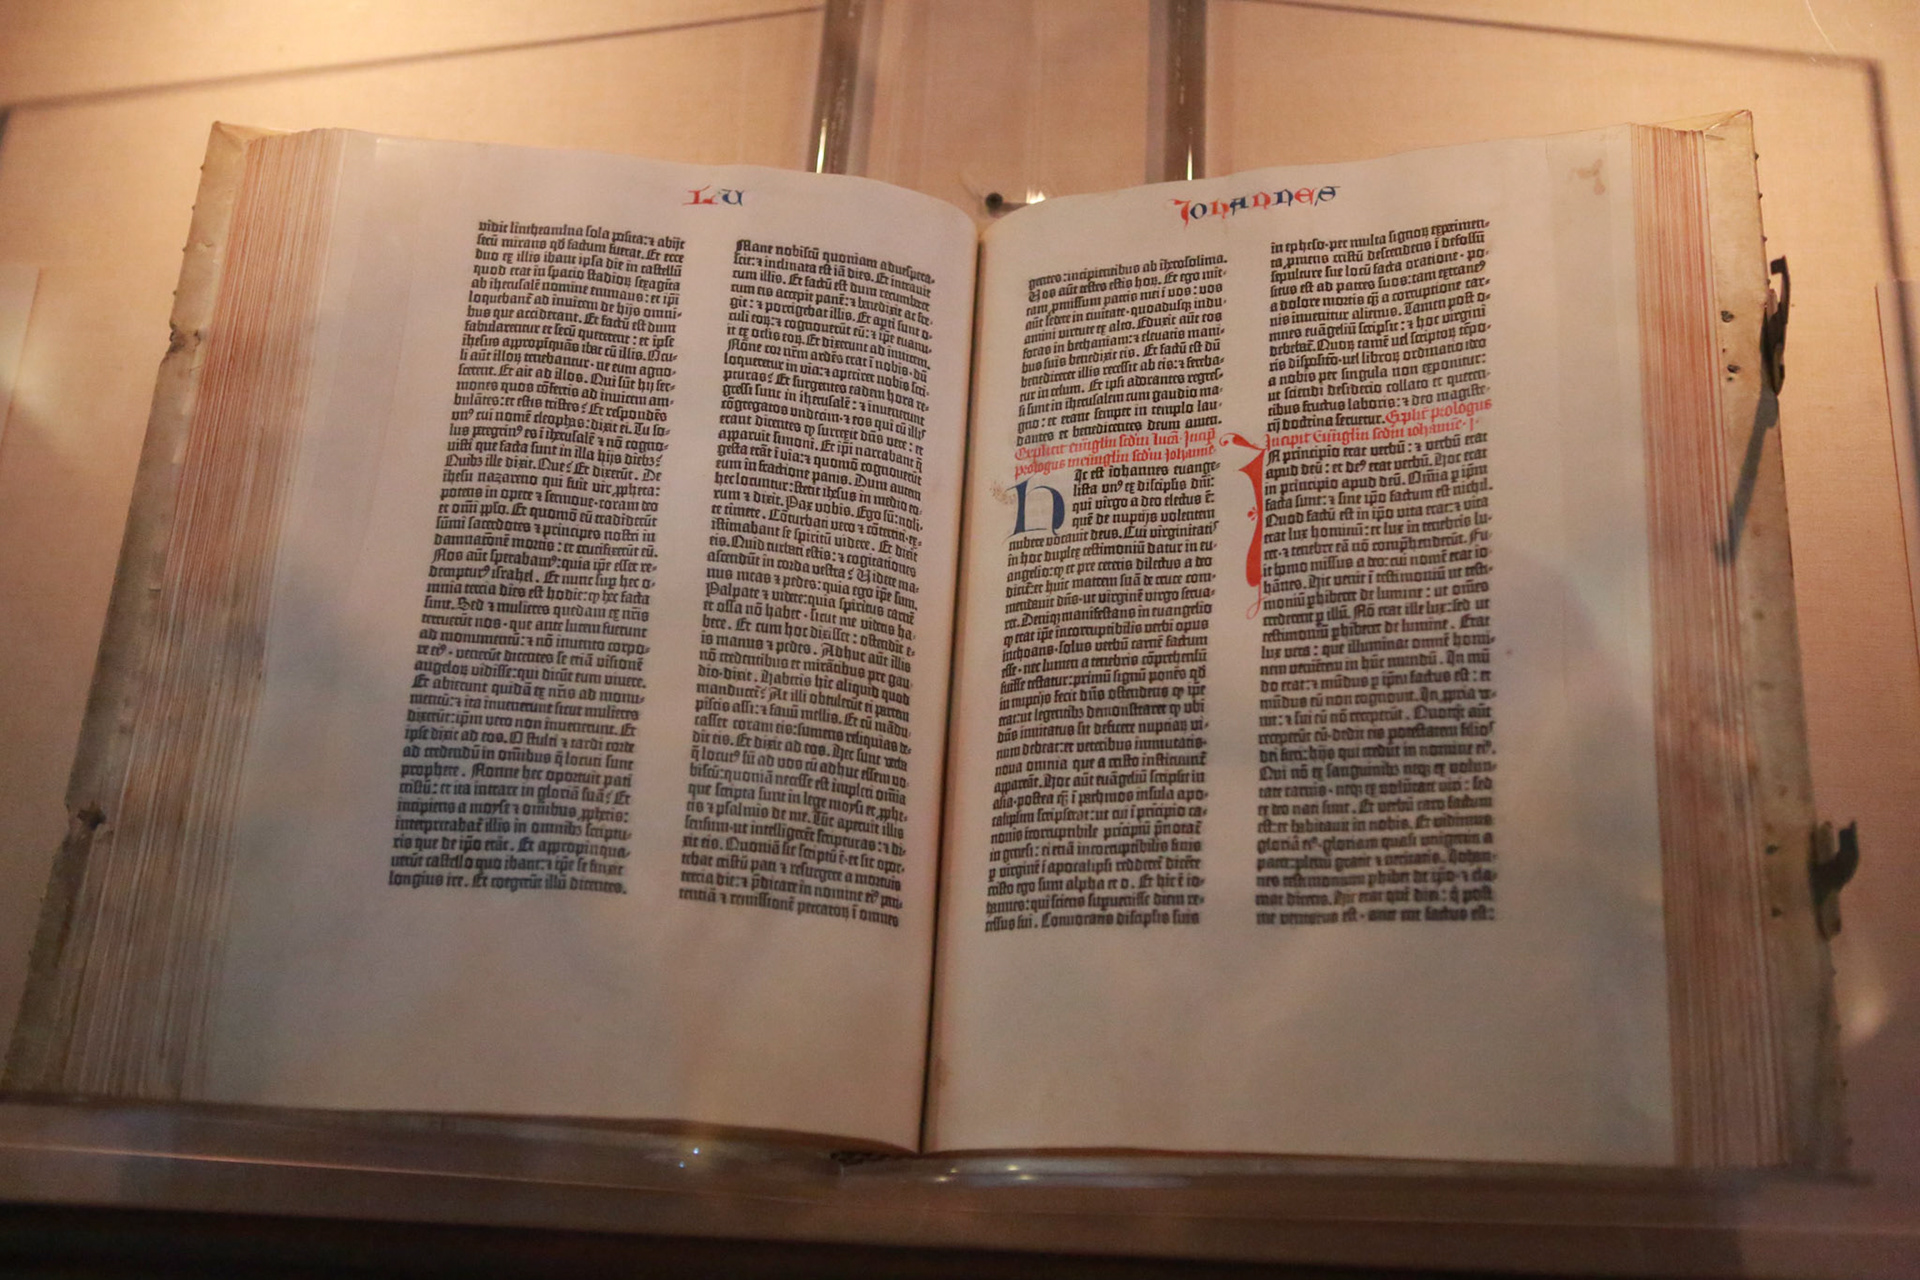 LU
vidit linthea mina sola posita: ⁊ abijt
secū mirans qd̄ factum fuerat. Et ecce
duo ex illis ibant ipsa die in castellū
quod erat in spacio stadioꝝ sexaginta
ab iherusalē nomine emmaus: et ip̄i
loquebant̄ ad inuicem de hijs omni-
bus que acciderant. Et factū est dum
fabularentur et secū quererent: et ipse
ihesus appropīquās ibat cū illis. Ocu-
li aūt illoꝝ tenebantur · ne eum agno-
scerent. Et ait ad illos. Qui sūt hij ser-
mones quos cōfertis ad inuicem am-
bulātes: et estis tristes? Et respondēs
vnꝰ cui nomē cleophas: dixit ei. Tu so-
lus peregrinꝰ es ī iherusalē ⁊ nō cogno-
uisti que facta sunt in illa hijs diebꝫ?
Quibꝫ ille dixit. Que? Et dixerūt. De
ihesu nazareno qui fuit vir ꝓpheta:
potens in opere ⁊ sermone · coram deo
et om̄i pp̄lo. Et quomō eū tradiderūt
sūmi sacerdotes ⁊ principes nostri in
damnationē mortis: et crucifixerūt eū.
Nos aūt sperabamꝰ: quia ip̄e esset re-
dempturꝰ israhel. Et nunc sup hec o-
mnia tercia dies est hodie: qꝫ hec facta
sunt. Sed ⁊ mulieres quedam ex nr̄is
terruerūt nos · que ante lucem fuerunt
ad monumentū: ⁊ nō inuento corpo-
re eiꝰ · venerūt dicentes se etiā visionē
angeloꝝ vidisse: qui dicūt eum viuere.
Et abierunt quidā ex nr̄is ad monu-
mentū: ⁊ ita inuenerunt sicut mulieres
dixerūt: ip̄m vero non inuenerunt. Et
ipse dixit ad eos. O stulti ⁊ tardi corde
ad credendū in om̄ibus q̄ locuti sunt
prophete. Nonne hec oportuit pati
cristū: et ita intrare in gloriā suā? Et
incipiens a moyse ⁊ om̄ibus ꝓphetis:
interpretabat̄ illis in omnibꝫ scriptu-
ris que de ip̄o erāt. Et appropinqua-
uerūt castello quo ibant: ⁊ ip̄e se finxit
longius ire. Et coegerūt illū dicentes.
Mane nobiscū quoniam aduespera-
scit: ⁊ inclinata est iā dies. Et intrauit
cum illis. Et factū est dum recumberet
cum eis accepit panē: ⁊ benedixit ac fre-
git: ⁊ porrigebat illis. Et apti sunt o-
culi eoꝝ: ⁊ cognouerūt eū: ⁊ ip̄e euanu-
it ex oclis eoꝝ. Et dixerunt ad inuicem.
Nōne cor nr̄m ardēs erat ī nobis · dū
loqueretur in via: ⁊ aperiret nobis scri-
pturas? Et surgentes eadem hora re-
gressi sunt in iherusalē: ⁊ inuenerunt
cōgregatos vndecim · ⁊ eos qui cū illis
erant dicentes qꝫ surrexit dn̄s vere: et
apparuit simoni. Et ip̄i narrabant q̄
gesta erāt ī via: ⁊ quomō cognouerūt
eum in fractione panis. Dum autem
hec locuntur: stetit ihesus in medio eo-
rum ⁊ dixit. Pax vobis. Ego sū: noli-
te timere. Cōturbati vero ⁊ cōterriti · ex-
istimabant se spiritū videre. Et dixit
eis. Quid turbati estis: ⁊ cogitationes
ascendūt in corda vestra? Videte ma-
nus meas ⁊ pedes: quia ego ip̄e sum.
Palpate ⁊ videte: quia spiritus carnē
et ossa nō habet · sicut me videtis ha-
bere. Et cum hoc dixisset: ostendit e-
is manus ⁊ pedes. Adhuc aūt illis
nō credentibus et mirātibus pre gau-
dio · dixit. Habetis hic aliquid quod
manducet̄? At illi obtulerūt ei partem
piscis assi: ⁊ fauū mellis. Et cū mādu-
casset coram eis: sumens reliquias de-
dit eis. Et dixit ad eos. Hec sunt verba
q̄ locutꝰ sū ad vos cū adhuc essem vo-
biscū: quoniā necesse est impleri om̄ia
que scripta sunt in lege moysi et ꝓphe-
tis ⁊ psalmis de me. Tūc aperuit illis
sensum · ut intelligerēt scripturas: ⁊ di-
xit eis. Quoniā sic scriptū ē · et sic opor-
tebat cristū pati ⁊ resurgere a mortuis
tercia die: ⁊ p̄dicare in nomine eiꝰ peni-
tentiā ⁊ remissionē peccatoꝝ ī omnes
IOHANNES
gentes: incipientibus ab iherosolima.
Vos aūt testes estis hoꝝ. Et ego mit-
tam ꝓmissum patris mei ī vos: vos
aūt sedete in ciuitate · quoadusqꝫ indu-
amini virtute ex alto. Eduxit aūt eos
foras in bethaniam: ⁊ eleuatis mani-
bus suis benedixit eis. Et factū est dū
benediceret illis recessit ab eis: ⁊ fereba-
tur in celum. Et ipsi adorantes regres-
si sunt in iherusalem cum gaudio ma-
gno: et erant semper in templo lau-
dantes et benedicentes deum amen.
Explicit euāgliū scd̄m lucā. Incipit
prologus in euāgliū scd̄m Johannē.
Hic est iohannes euange-
lista vnꝰ ex discip̄lis dn̄i:
qui virgo a deo electus ē:
quē de nuptijs volentem
nubere vocauit deus. Cui virginitatꝭ
in hoc duplex testimoniū datur in eu-
angelio: qꝫ et pre ceteris dilectus a deo
dicit̄: et huic matrem suā de cruce com-
mendauit dn̄s · ut virginē virgo serua-
ret. Deniqꝫ manifestans in euangelio
qꝫ erat ip̄e incorruptibilis verbi opus
inchoans · solus verbū carnē factum
esse · nec lumen a tenebris cōprehensū
fuisse testatur: primū signū ponēs qd̄
in nuptijs fecit dn̄s ostendens qꝫ ip̄e
erat: ut legentibꝫ demonstraret qꝫ vbi
dn̄s inuitatus sit deficere nuptiaꝝ vi-
num debeat: et veteribus immutatis ·
noua omnia que a cristo instituunt̄
appareāt. Hoc aūt euāgeliū scripsit in
asia · postea q̄ ī pathmos insula apo-
calipsim scripserat: ut cui ī pricipio ca-
nonis īcorruptibile pricipiū p̄notat̄
in genesi: ei etiā incorruptibilis finis
ꝑ virginē ī apocalipsi redderet̄ dicēte
cristo ego sum alpha et o. Et hic ē io-
hannes: qui sciens supuenisse diem re-
cessus sui. Conuocatis discipulis suis
in epheso · per multa signoꝝ experimen-
ta ꝓmens cristū descendens ī defossū
sepulture sue locū facta oratione · po-
situs est ad patres suos: tam extraneꝰ
a dolore mortis q̄ a corruptione car-
nis inuenitur alienus. Tamen post o-
mnes euāgeliū scripsit: ⁊ hoc virgini
debebat̄. Quoꝝ tamē vel scriptoꝝ tēpo-
ris dispositio · uel libroꝝ ordinatio ideo
a nobis per singula non exponitur:
ut sciendi desiderio collato et queren-
tibus fructus laboris: ⁊ deo magiste-
rij doctrina seruetur. Explicit prologus
Incipit Euāgliū scd̄m iohannē · I ·
In principio erat verbū: ⁊ verbū erat
apud deū: et deꝰ erat verbū. Hoc erat
in principio apud deū. Om̄ia ꝑ ip̄m
facta sunt: ⁊ sine ip̄o factum est nichil.
Quod factū est in ip̄o vita erat: ⁊ vita
erat lux hominū: et lux in tenebris lu-
cet · ⁊ tenebre eā nō comp̄henderūt. Fu-
it homo missus a deo: cui nomē erat io-
hānes. Hic venit ī testimoniū ut testi-
moniū ꝑhiberet de lumine: ut om̄es
crederent ꝑ illū. Nō erat ille lux: sed ut
testimoniū ꝑhiberet de lumine. Erat
lux vera: que illuminat omnē homi-
nem venientem in hūc mundū. In mū-
do erat: ⁊ mūdus ꝑ ip̄m factus est: et
mūdus eū non cognouit. In ꝓpria ve-
nit: ⁊ sui eū nō receperūt. Quotqͦt aūt
receperūt eū · dedit eis potestatem filioꝭ
dei fieri: hijs qui credūt in nomine eiꝰ.
Qui nō ex sanguinibꝫ neqꝫ ex volun-
tate carnis · neqꝫ ex volūtate viri: sed
ex deo nati sunt. Et verbū caro factum
est: et habitauit in nobis. Et vidimus
gloriā eiꝰ · gloriam quasi vnigeniti a
patre: plenū gratie ⁊ veritatis. Johan-
nes testimonium ꝑhibet de ip̄o · ⁊ cla-
mat dicens. Hic erat quē dixi: q̄ post
me venturus est · ante me factus est: